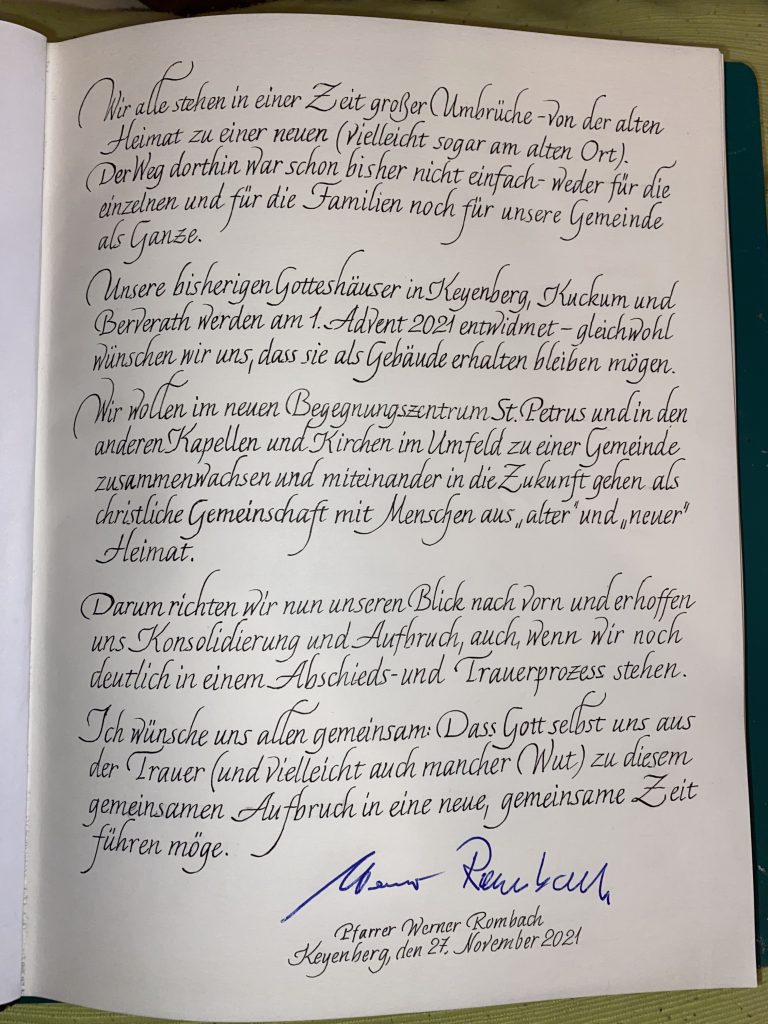 Wir alle stehen in einer Zeit großer Umbrüche - von der alten
Heimat zu einer neuen (vielleicht sogar am alten Ort).
Der Weg dorthin war schon bisher nicht einfach - weder für die
einzelnen und für die Familien noch für unsere Gemeinde
als Ganze.
Unsere bisherigen Gotteshäuser in Keyenberg, Kuckum und
Berverath werden am 1. Advent 2021 entwidmet – gleichwohl
wünschen wir uns, dass sie als Gebäude erhalten bleiben mögen.
Wir wollen im neuen Begegnungszentrum St. Petrus und in den
anderen Kapellen und Kirchen im Umfeld zu einer Gemeinde
zusammenwachsen und miteinander in die Zukunft gehen als
christliche Gemeinschaft mit Menschen aus „alter“ und „neuer“
Heimat.
Darum richten wir nun unseren Blick nach vorn und erhoffen
uns Konsolidierung und Aufbruch, auch, wenn wir noch
deutlich in einem Abschieds- und Trauerprozess stehen.
Ich wünsche uns allen gemeinsam: Dass Gott selbst uns aus
der Trauer (und vielleicht auch mancher Wut) zu diesem
gemeinsamen Aufbruch in eine neue, gemeinsame Zeit
führen möge.
Werner Rombach
Pfarrer Werner Rombach
Keyenberg, den 27. November 2021